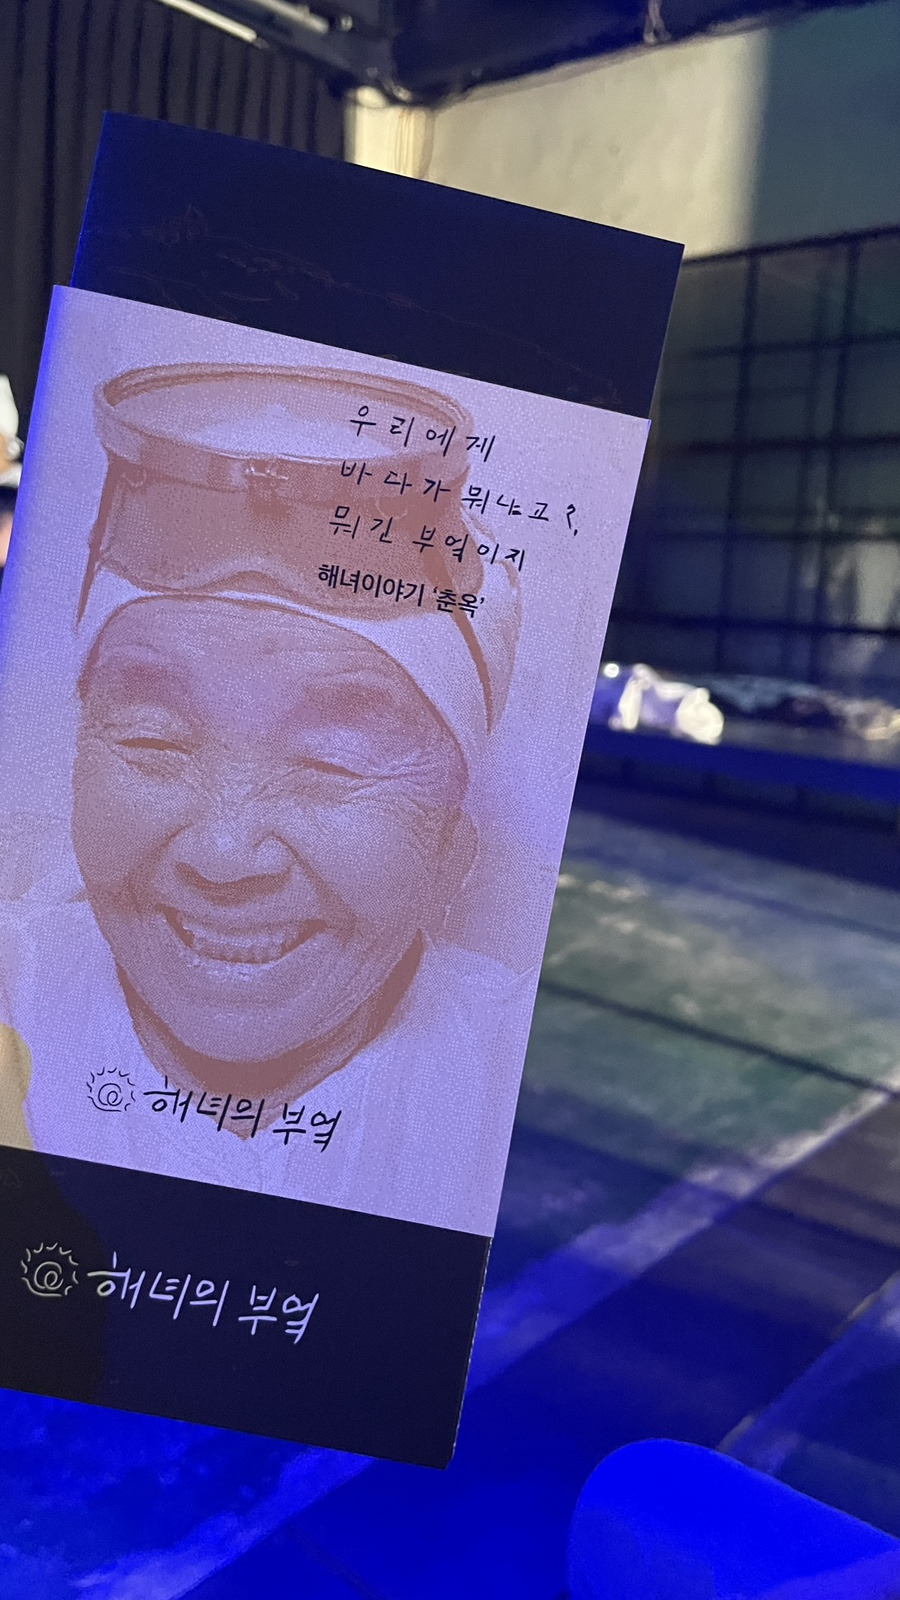 우리에게
바다가 뭐냐고?,
뭐긴 부엌이지
해녀이야기 '춘옥'
해녀의 부엌
해녀의 부엌